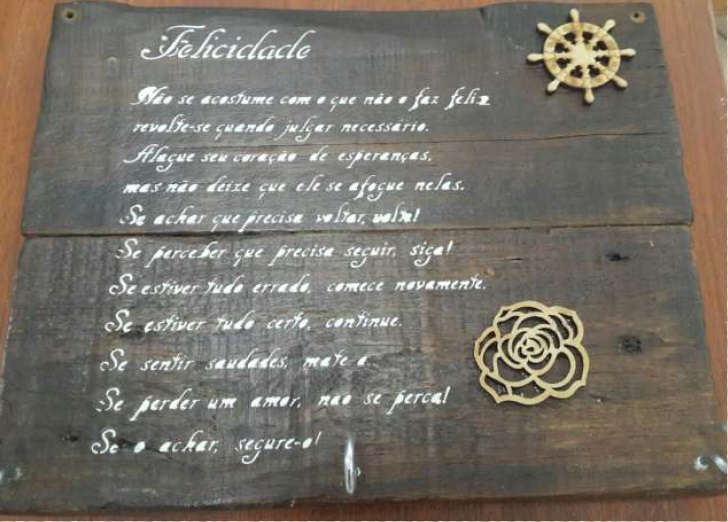 Felicidade
Não se acostume com o que não o faz feliz
revolte-se quando julgar necessário.
Alague seu coração de esperanças,
mas não deixe que ele se afogue nelas.
Se achar que precisa voltar, volte!
Se perceber que precisa seguir, siga!
Se estiver tudo errado, comece novamente.
Se estiver tudo certo, continue.
Se sentir saudades, mate-a.
Se perder um amor, não se perca!
Se o achar, segure-o!